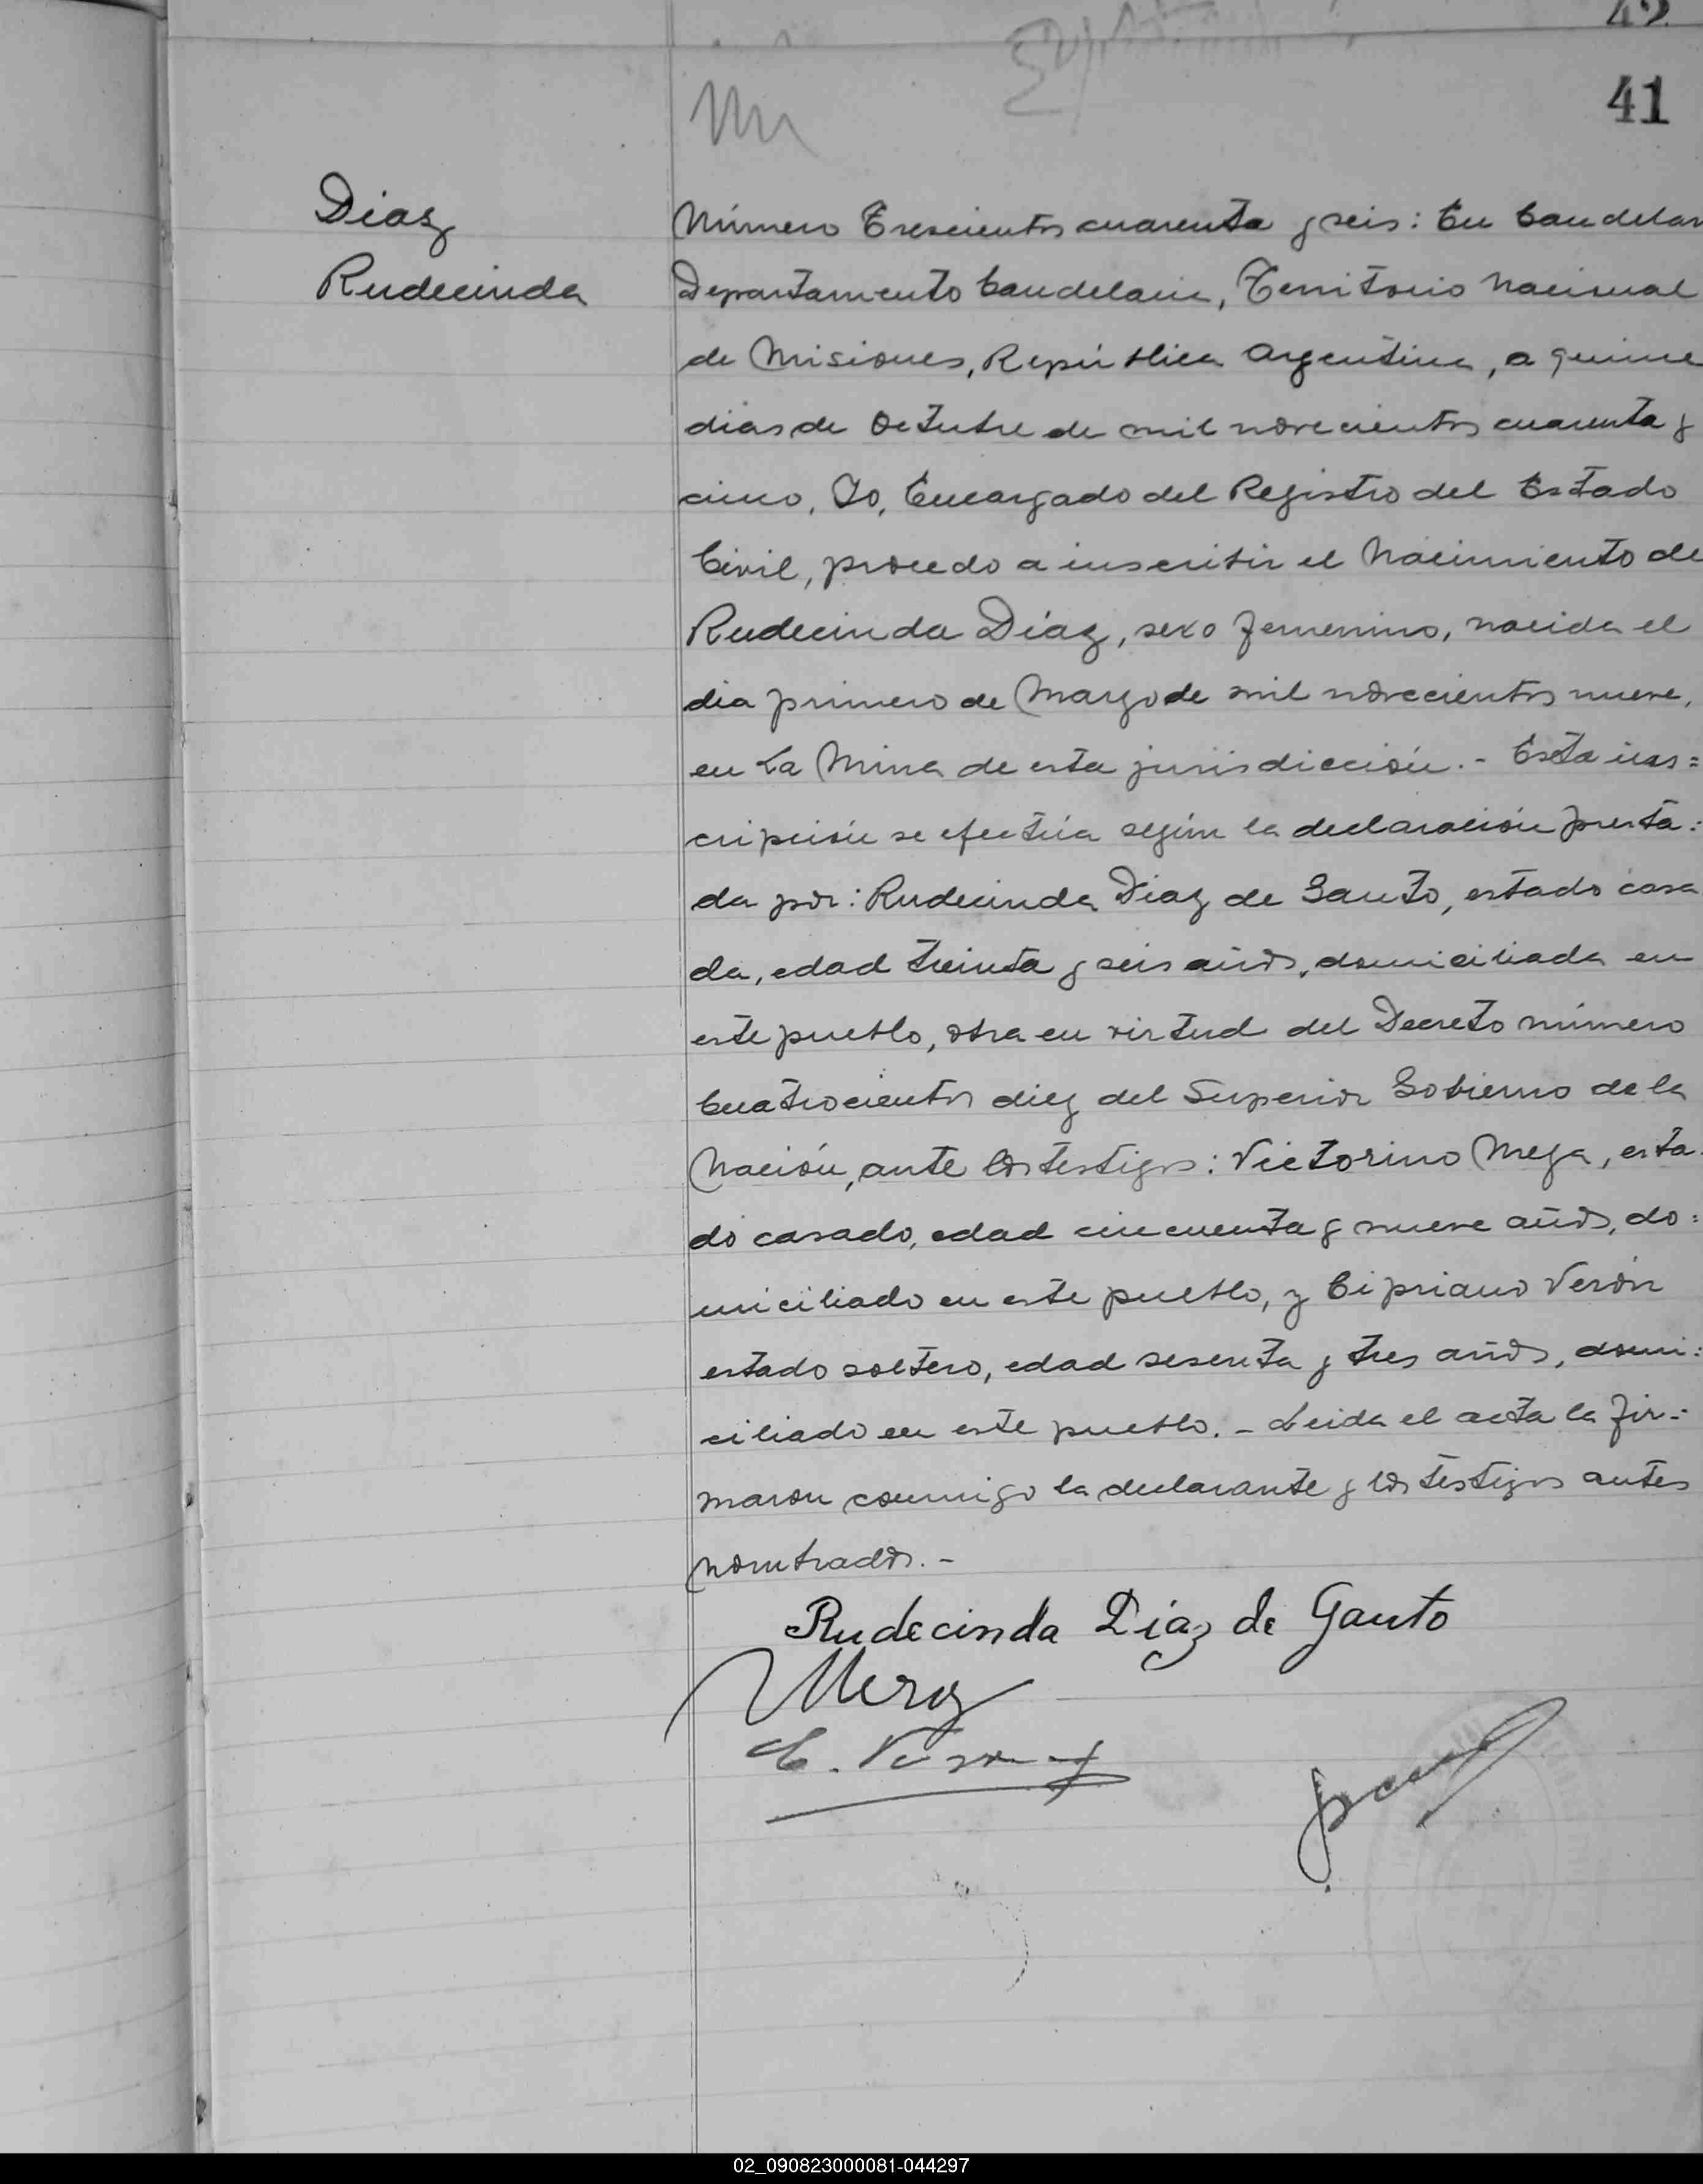 42
41
Diaz
Rudecinda
Número Trescientos cuarenta y seis: En Candelar
Departamento Candelaria, Territorio Nacional
de Misiones, República Argentina, a quince
dias de Octubre de mil novecientos cuarenta y
cinco, Yo, Encargado del Registro del Estado
Civil, procedo a inscribir el Nacimiento de
Rudecinda Díaz, sexo femenino, nacida el
dia primero de Marzo de mil novecientos nueve,
en La Mina de esta jurisdicción.- Esta ins=
cripción se efectúa según la declaración presta:
da por: Rudecinda Diaz de Gauto, estado casa
da, edad treinta y seis años, domiciliada en
este pueblo, obra en virtud del Decreto número
Cuatrocientos diez del Superior Gobierno de la
Nación, ante los testigos: Victorino Meza, esta.
do casado, edad cincuenta y nueve años, do:
miciliado en este pueblo, y Cipriano Verón
estado soltero, edad sesenta y tres años, domi:
ciliado en este pueblo.- Leida el acta la fir-:
maron conmigo la declarante y los testigos antes
nombrados.-
Rudecinda Díaz de Gauto
C. Veron
02_090823000081-044297